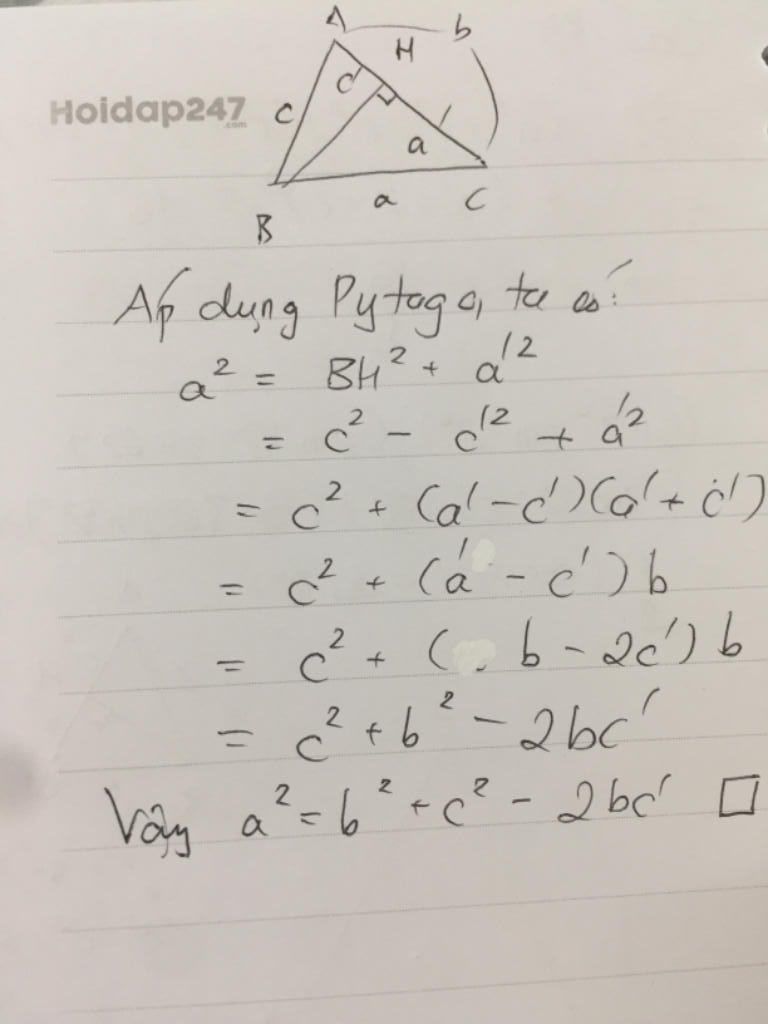 A b
H
Hoidap247
.com
c c'
a'
a C
B
Áp dụng Pytago, ta có:
a² = BH² + a'²
= c² - c'² + a'²
= c² + (a' - c')(a' + c')
= c² + (a' - c')b
= c² + (. b - 2c')b
= c² + b² - 2bc'
Vậy a² = b² + c² - 2bc' □